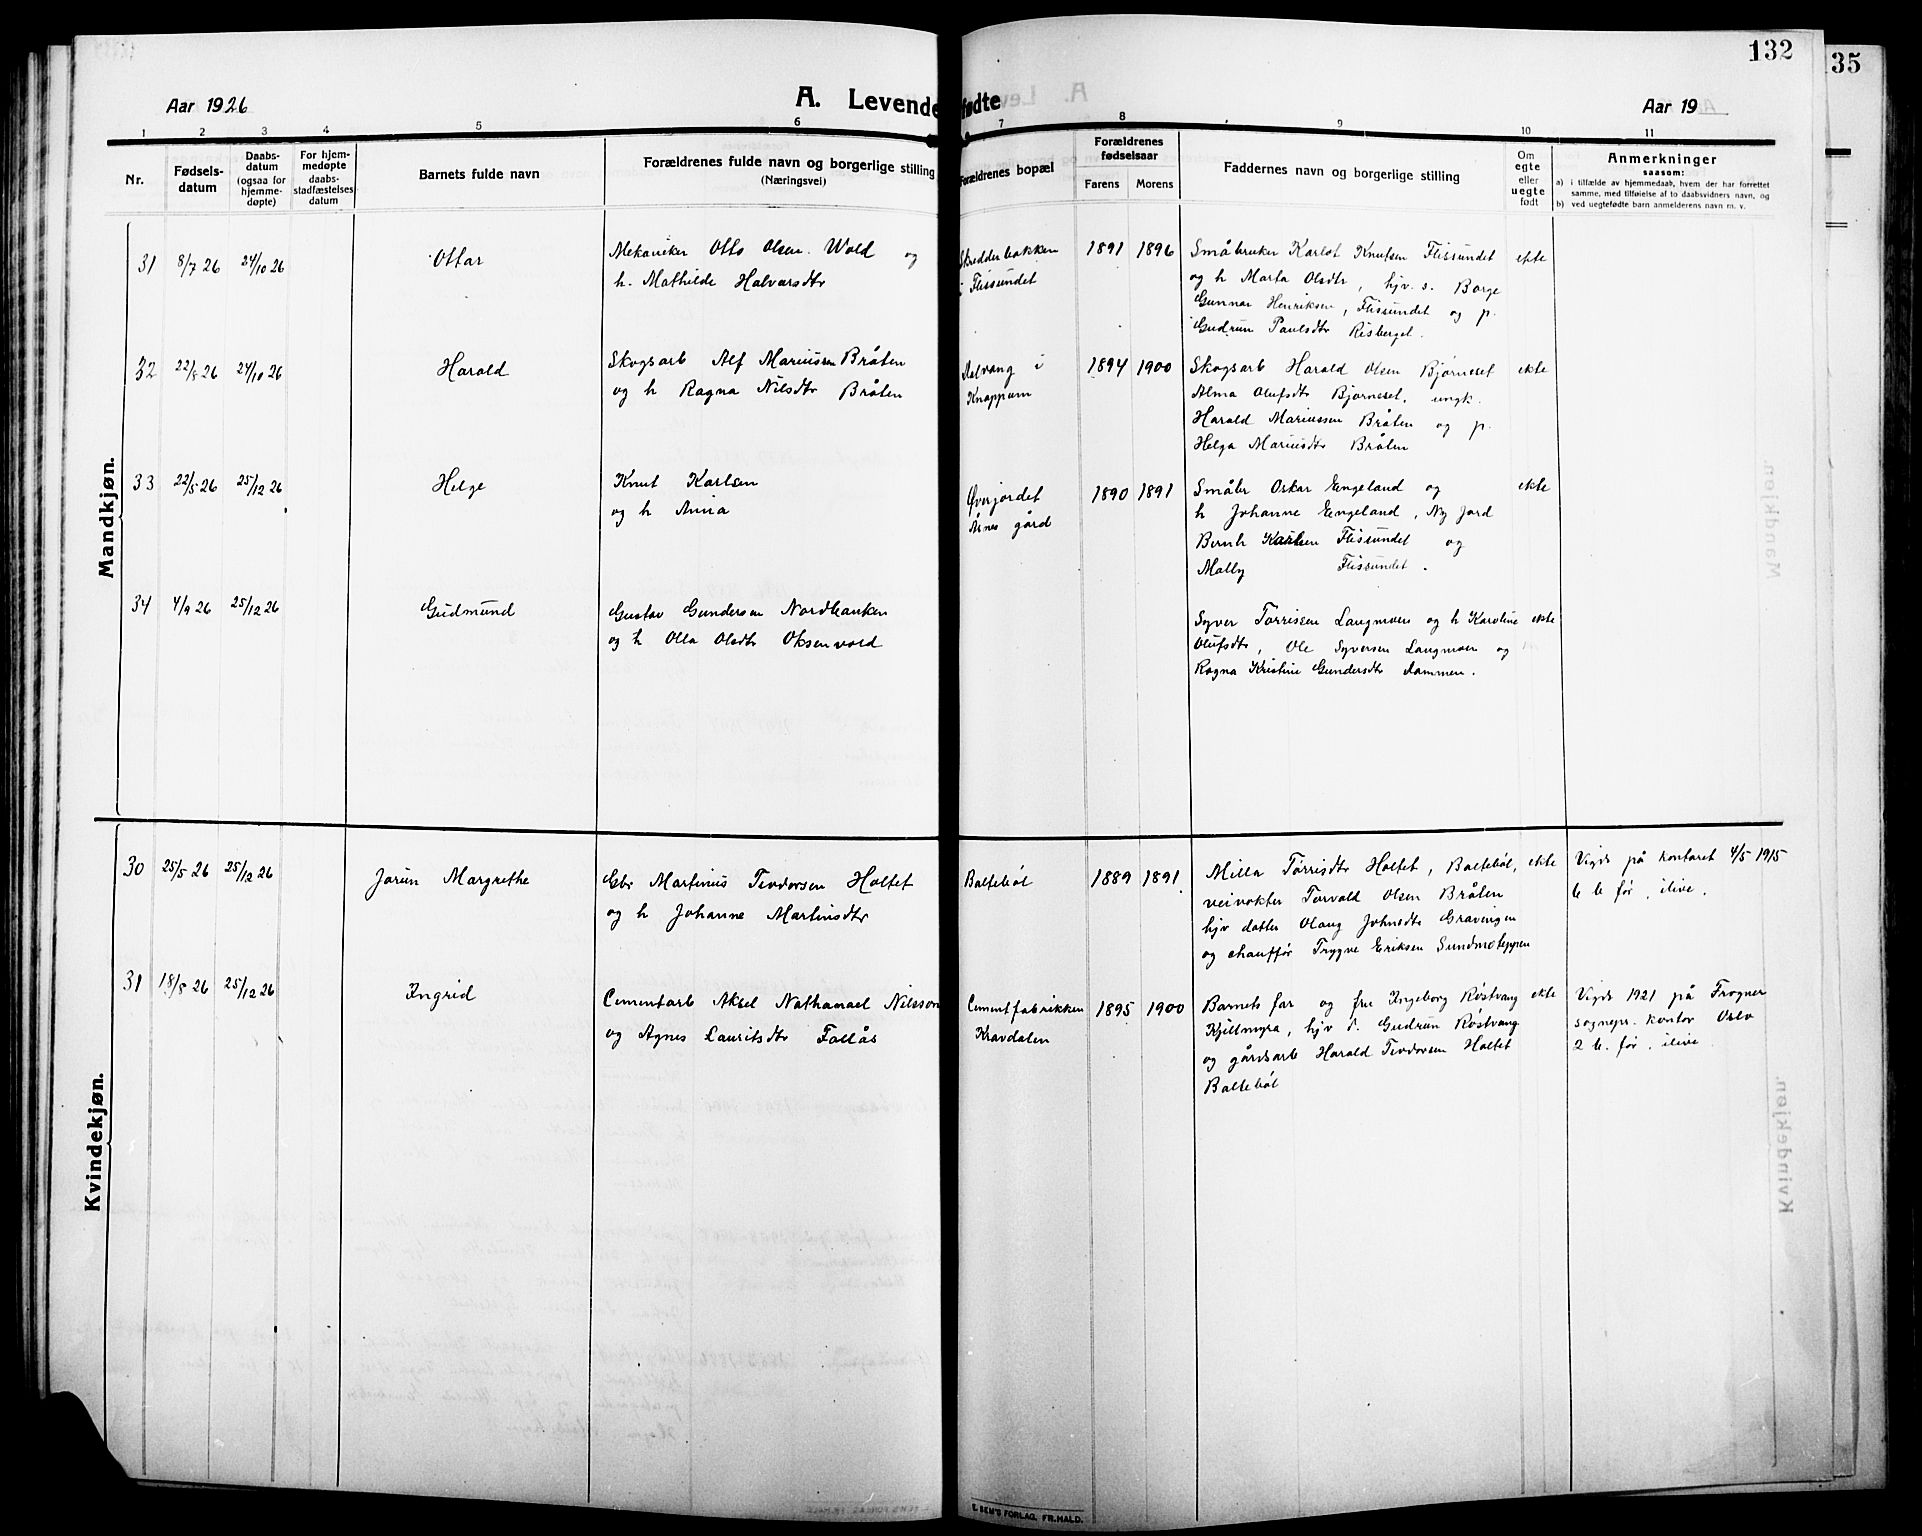 132
35
Aar 1926
A. Levendefødte
Aar 19
1 2 3 4 5 6 7 8 9 10 11
Nr.
Fødsels-
datum
Daabs-
datum
(ogsaa for
hjemme-
døpte)
For hjem-
medøpte
daabs-
stadfæstelses
datum
Barnets fulde navn
Forældrenes fulde navn og borgerlige stilling
(Næringsvei)
Forældrenes bopæl
Forældrenes
fødselsaar
Farens Morens
Faddernes navn og borgerlige stilling
Om
egte
eller
uegte
født
Anmerkninger
saasom:
a) i tilfælde av hjemmedaab, hvem der har forrettet
samme, med tilføielse af to daabsvidners navn, og
b) ved uegtefødte barn anmelderens navn m. v.
Mandkjøn.
31 8/7 26 24/10 26 Ottar
Mekaniker Otto Olsen Wold og
h. Mathilde Halvarsdtr
Skredderbakken
i Flissundet
1891 1896
Småbruker Karlot Knutsen Flissundet
og h Marta Olsdtr, hjv. s. Borge
Gunnar Henriksen, Flissundet og p.
Gudrun Paulsdtr Risberget.
ekte
32 22/8 26 24/10 26 Harald
Skogsarb Alf Mariussen Bråten
og h Ragna Nilsdtr Bråten
Malvang i
Knappum
1894 1900
Skogsarb Harald Olsen Bjørneset
Alma Olufsdtr Bjørneset, ungk.
Harald Mariussen Bråten og p.
Helga Mariusdtr Bråten
ekte
33 22/5 26 25/12 26 Helge
Knut Karlsen
og h Anna
Øverjordet
Åsnes gård
1890 1891
Småbr Oskar Engeland og
h Johanne Engeland, Ny Jord
Bernh Karlsen Flissundet og
Mally Flissundet.
ekte
34 4/9 26 25/12 26 Gudmund
Gustav Gundersen Nordbanken
og h Olla Olsdtr Oksenvold
Syver Torrissen Langmoen og h Karoline
Olufsdtr, Ole Syversen Langmoen og
Ragna Kristine Gundersdtr dammen.
ekte
Kvindekjøn.
30 25/5 26 25/12 26 Jorun Margrethe
Gbr Martinius Tevdorsen Holtet
og h Johanne Martinsdtr
Baltebøl
1889 1891
Milla Torrisdtr Holtet, Baltebøl,
veivokter Torvald Olsen Bråten
hjv datter Olaug Johnsdtr Gravingen
og chauffør Trygve Eriksen Sundmoteppen
ekte
Vigde på kontoret 4/5 1915
6 b før, ilive.
31 18/8 26 25/12 26 Ingrid
Cementarb Aksel Nathanael Nilsson
og Agnes Lauritsdtr Fallås
Cementfabrikken
Kravdalen
1895 1900
Barnets far og fru Ingeborg Røstvang
Kjillmyra, hjv d. Gudrun Røstvang
og gårdsarb Harald Tevdorsen Holtet
Baltebøl
ekte
Vigde 1921 på Frogner
sognepr. kontor Oslo
2 b. før, ilive.
E. SEM'S FORLAG, FR.HALD.